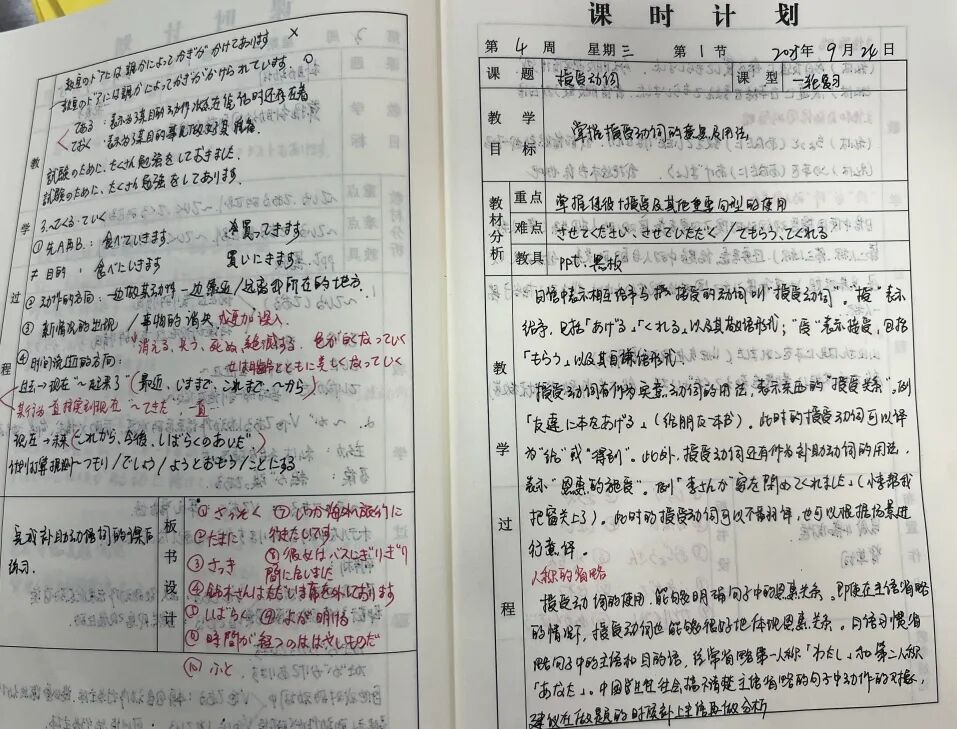 教室のドアには誰かによってかぎがかけてあります ×
教室のドアには誰かによってかぎがかけられています。○
てある:表示为某目的动作状态在说话时还存在着
ておく:表示为某目的事先做好准备.
試験のために、たくさん勉強をしておきました.
試験のために、たくさん勉強をしてあります.
3.~てくる・ていく
①先A后B:食べていきます 買ってきます
≠目的:食べにいきます 買いにきます
②动作的方向:一边做某动作一边靠近/远离我所在的地方.
③新情况的出现/事物的消失 或更加深入.
消える、失う、死ぬ、絶滅する
④时间流逝的方向:
过去→现在"~起来了"(最近、いままで、これまで、~から)
某行为一直持续到现在 ~てきた 一直
现在→未来(これから、今後、しばらくのあいだ)
计划打算规则~つもり/でしょう/ようとおもう/ことにする
教
学
过
程
完成补助动词的课后
练习.
板书设计
① さっそく
② たまに 行きたいです
③ さっき 間に合いました
④ 鈴木さんはただいま席を外しております
⑤ しばらく ⑨ よが明ける
⑥ 時間が経つのははやいものだ
⑩ ふと
课时计划
第 4 周 星期三 第 1 节 2025年 9月 24日
课题 授受动词 课型 一轮复习
教学目标 掌握授受动词的意思及用法
教材分析 重点 掌握使役+授受及其他重要句型的使用
难点 させてください、させていただく/てもらう、てくれる
教具 ppt、黑板
教
学
过
程
日语中表示相互给予与接受的动词叫"授受动词"。"授"表示
给予,包括「あげる」「くれる」以及其敬语形式;"受"表示接受,包括
「もらう」以及其自谦语形式.
授受动词有作为实意动词的用法,表示东西的"授受关系"。例
「友達に本をあげる」(给朋友一本书)。此时的授受动词可以译
为"给"或"得到"。此外,授受动词还有作为补助动词的用法,
表示"恩惠的授受"。例「李さんが窓を閉めてくれました」(小李帮我
把窗关上了),此时的授受动词可以不翻译,也可以根据语素进
行意译。
人称的省略
授受动词的使用,能够明确句子中的恩惠关系。即使在主语省略
的情况下,授受动词也能够很好地体现恩惠关系。日语习惯省
略句子中的主语和目的语,经常省略第一人称「わたし」和第二人称
「あなた」。中国学生往往会搞不清楚主语省略的句子中动作的对象,
建议在做题的时候补上主语再做分析